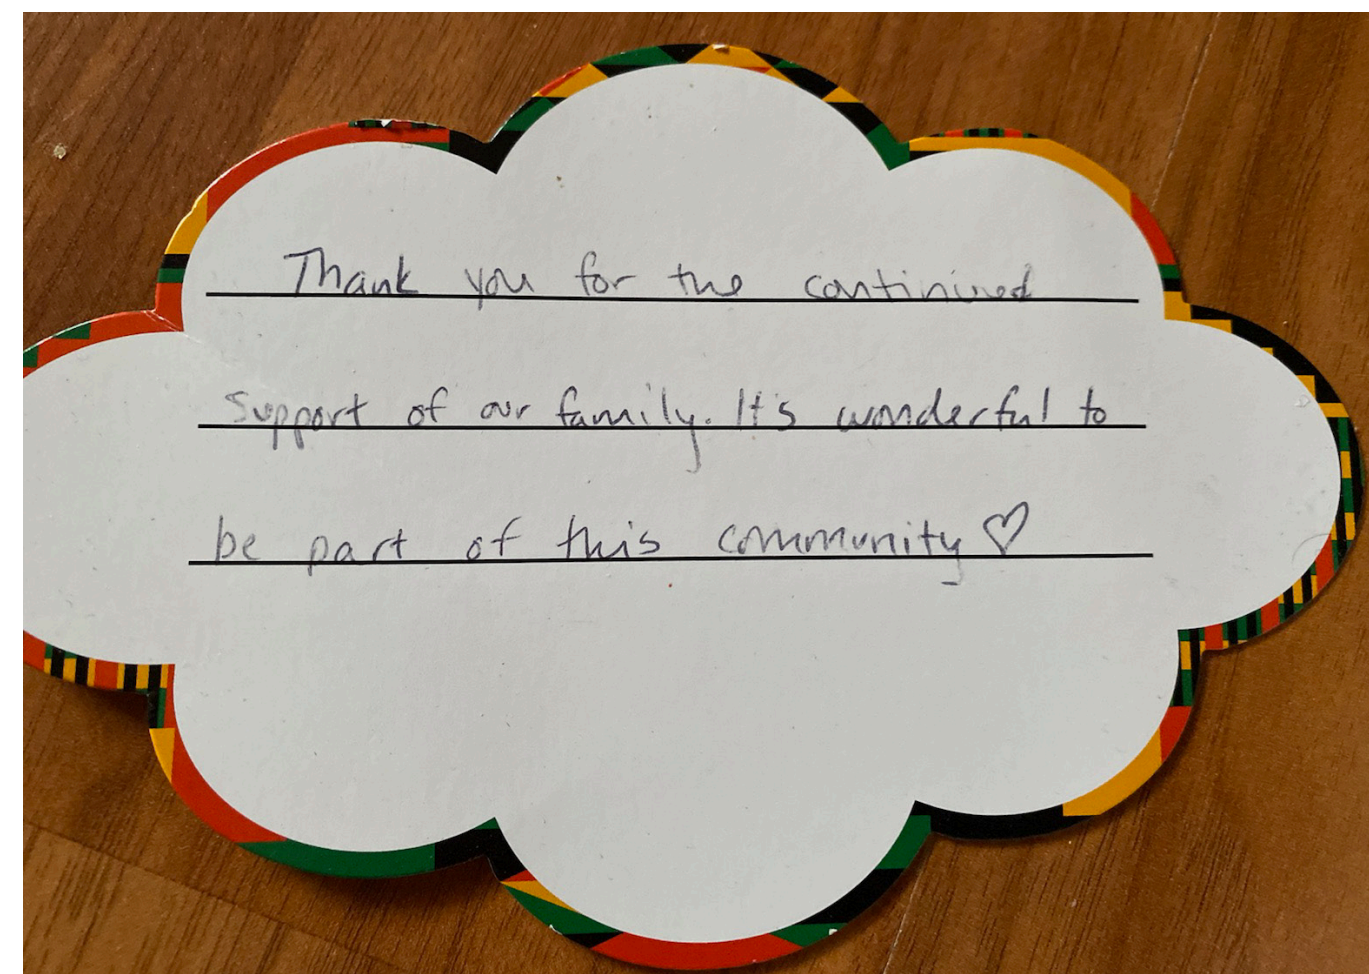 Thank you for the continued
support of our family. It's wonderful to
be part of this community ♡